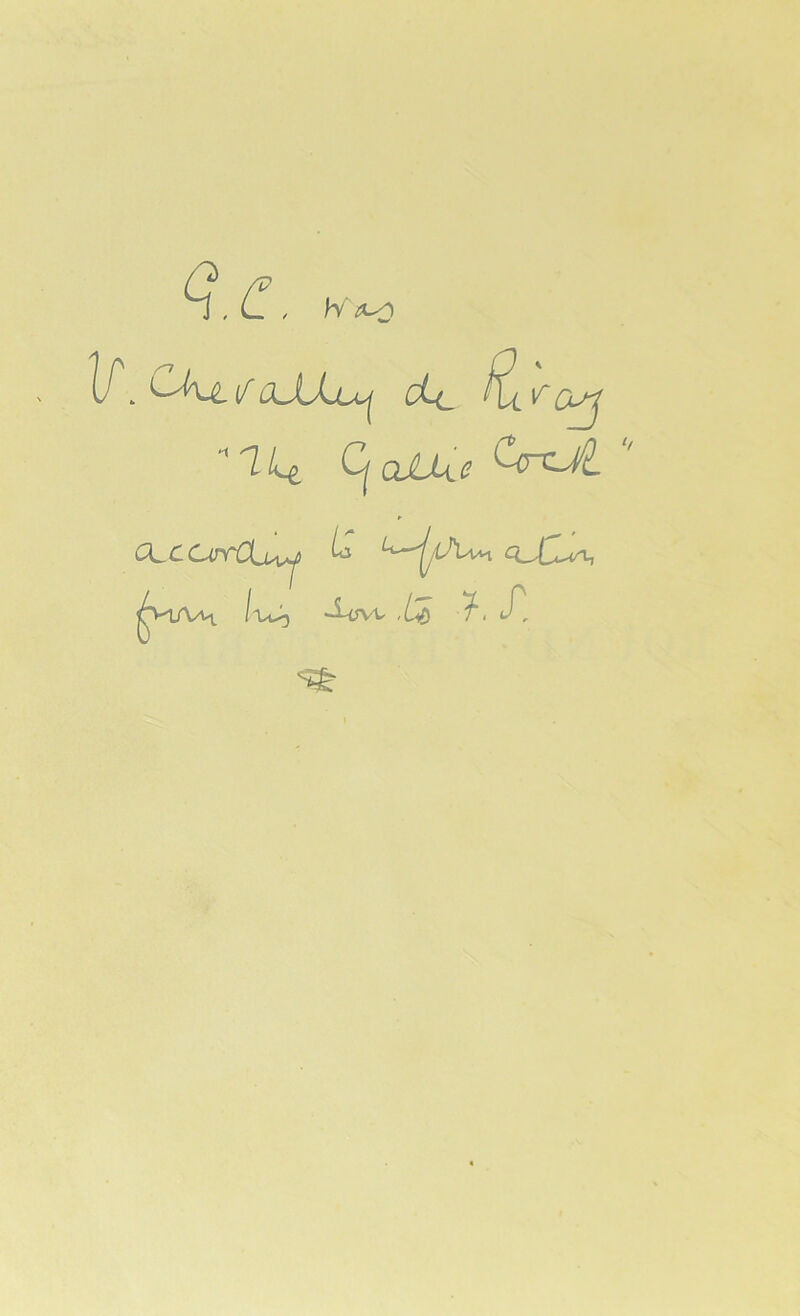 G.C. was
V. Chevalley de Rivaz
"The Gallic Cock"
according to information
from his son to F. S.